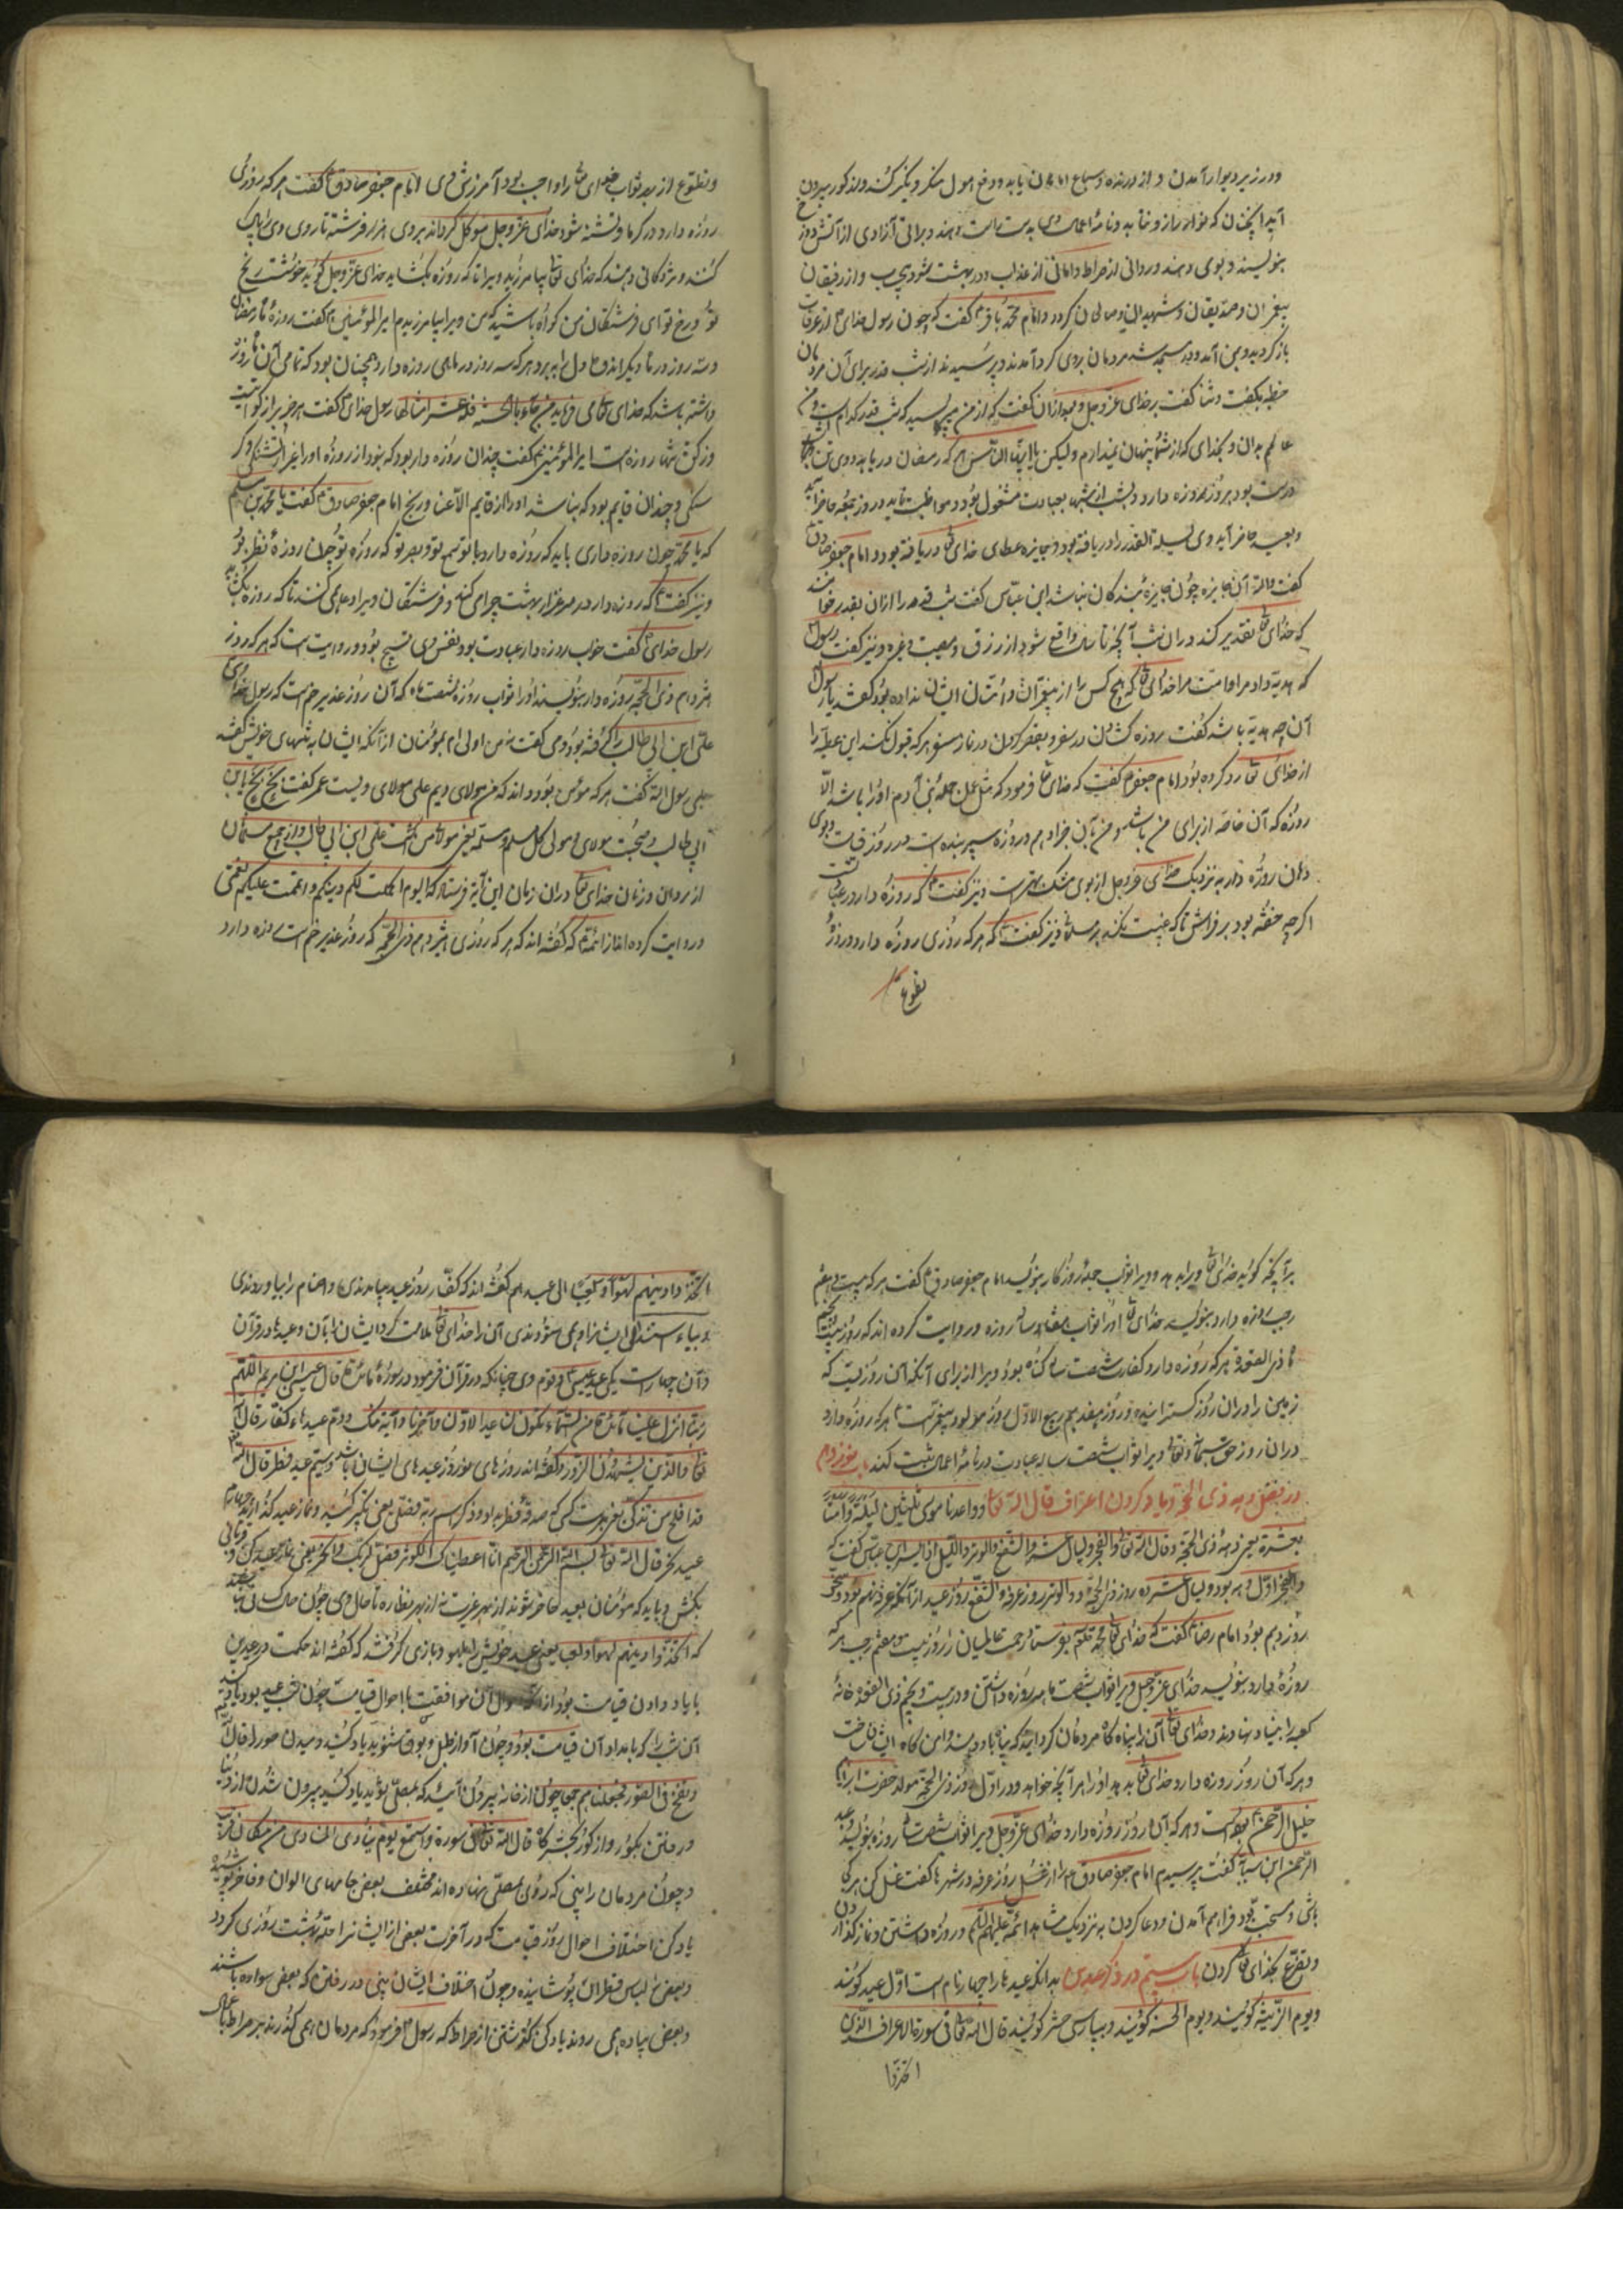 ودر زیر دیوار آمدن و از درنده وسباع امان یابد ودفع هول منکر ونکیر کند ودر کور بیرون
آید آنچنان که نواز راز ونامه اعمال وی بدست راست دهند وبراتی آزادی از آتش دوزخ
بنویسند وبوی دهند وروانی از صراط وامانی از عذاب ودر بهشت شود بی حساب واز رفیقان
پیغمبران وصدیقان وشهیدان وصالحان کردد وامام محمد باقر گفت که چون رسول خدای از عرفات
باز کردید وبمنی آمد ودر مسجد شد مردمان بروی کرد آمدند وپرسیدند از شب قدر برای آن مردمان
خطبه بگفت وثنا گفت برخدای عز وجل وبعد ازان گفت که از من می پرسید که شب قدر کدام است ومن
عالمم بدان وبخدای که از شما پنهان نمیدارم ولیکن یا ایها الناس هر که رمضان دریابد ووی تن
درست بود بروز روزه دارد وبشب از شبها بعبادت مشغول بود ومواظبت نماید ودر روز جمعه حاضر آید
وبعید حاضر آید وی لیلة القدر را دریافته بود وبجایزه عطای خدای تعالی دریافته بود وامام جعفر صادق
گفت والله آن جایزه چون جایزه بندگان نباشد ابن عباس گفت شب قدر را ازان بقدر خوانند
که خدای تعالی تقدیر کند دران شب آنچه تا سال واقع شود از رزق ومصیبت وغیره ونیز گفت رسول
که هدیه داد مرا وامت مرا خدای تعالی که هیچ کس را از پیغمبران وامتان ایشان نداده بود گفتند یا رسول
آن چه هدیه باشد گفت روزه گشادن در سفر وبقصر کردن در نماز سفر هر که قبول نکند این عطیه را
از خدای تعالی رد کرده بود امام جعفر گفت که خدای تعالی فرمود که مثل عمل جمله بنی آدم اورا باشد الا
روزه که آن خاصه از برای من باشد ومن بآن جزا دهم وروزه سپر بنده است در روز قیامت وبوی
دهان روزه دار به نزدیک خدای عز وجل از بوی مشک بهتر است ونیز گفت که روزه دار در عبادتست
اگر چه خفته بود بر فراش تا که غیبت نکند بر مسلمانی ونیز گفت که هر که روزی روزه دارد وروز
تطوع
وتطوع از بهر ثواب خدای تعالی را واجب بود آمرزش وی امام جعفر صادق گفت هر که روزی
روزه دارد در گرما وتشنه شود خدای عز وجل موکل گرداند بروی هزار فرشته تا روی وی را پاک
کنند ومژدگانی دهند که خدای تعالی بیامرزید ویرا تا که روزه بگشاید خدای عز وجل گوید خوشست رنج
تو ورخ تو ای فرشتگان من گواه باشید که من ویرا بیامرزیدم امیر المؤمنین گفت روزه ماه رمضان
وسه روز در ماه دیگر اندوه دل را ببرد وهر که سه روز در ماهی روزه دارد همچنان بود که تمامی آن ماه روزه
داشته باشد که خدای تعالی می فرماید من جاء بالحسنة فله عشر امثالها رسول خدای گفت هر چیز را زکوة است
وزکوة تنها روزه است امیر المؤمنین گفت چندان روزه دار بود که نبود از روزه اورا غیر از تشنگی وگر
سنگی وچندان قایم بود که نباشد اورا از قایم الا عنا ورنج امام جعفر صادق گفت با محمد بن مسلم
که یا محمد چون روزه داری باید که روزه دارد با تو سمع تو وبصر تو که روزه تو چون روزه فطر تو
ونیز گفت که روزه دار در مرغزار بهشت چرا می کند وفرشتگان ویرا دعا می کنند تا که روزه بگشاید
رسول خدای گفت خواب روزه دار عبادت بود ونفس وی تسبیح بود ودر روایت است که هر که روز
هژدهم ذی الحجه روزه دارد بنویسند اورا ثواب روزه شصت ماه که آن روز غدیر خم است که رسول خدای
علی ابن ابی طالب را گرفته بود ومی گفت نه من اولی ام بمؤمنان از آنکه ایشان به تنهای خویش گفتند
بلی رسول الله گفت هر که مؤمن بود وداند که من مولای ویم علی مولای ویست عمر گفت بخ بخ یا ابن
ابی طالب اصبحت مولای ومولی کل مسلم ومسلمة یعنی مولای من گشت علی ابن ابی طالب واز جمیع مسلمانان
از مردان وزنان خدای تعالی دران زمان این آیه فرستاد که الیوم اکملت لکم دینکم واتممت علیکم نعمتی
وروایت کرده اند از ائمه که گفته اند که هر که روزی هژدهم ذی الحجه که روز غدیر خم است روزه دارد
هر آنچه گوید خدای تعالی ویرا بدهد وویرا ثواب جمله روزگار بنویسد امام جعفر صادق گفت هر که بیست وهفتم
رجب روزه دارد بنویسد خدای تعالی اورا ثواب هفتاد ساله روزه وروایت کرده اند که روز بیست وپنجم
ماه ذی القعده هر که روزه دارد کفارت شصت ساله گناه بود ویرا از برای آنکه آن روزیست که
زمین را دران روز گسترانید وروز هفدهم ربیع الاول روز مولود پیغمبر است هر که روزه دارد
دران روز حق سبحانه وتعالی ویرا ثواب شصت ساله عبادت در نامه اعمال ثبت کند باب نوزدهم
در فضل دهه ذی الحجه ویاد کردن اعراف قال الله تعالی وواعدنا موسی ثلثین لیلة واتممناها
بعشر یعنی دهه ذی الحجه وقال الله تعالی والفجر ولیال عشر والشفع والوتر واللیل اذا یسر ابن عباس گفت که
والفجر اول دهه بود ولیال عشر ده روز ذی الحجه ووالوتر روز عرفه والشفع روز عید از آنکه عرفه نهم بود ونحر
روز دهم بود امام رضا گفت که خدای تعالی محمد را بفرستاد رحمت عالمیان را روز بیست وهفتم رجب هر که
روزه دارد بنویسد خدای عز وجل ویرا ثواب شصت ماهه روزه داشتن ودر بیست وپنجم ذی القعده خانه
کعبه را بنیاد نهادند وخدای تعالی آن را پناه گاه مردمان گردانید که پناه باو دهند وامن گاه ایشان ساخت
وهر که آن روز روزه دارد خدای تعالی بدهد اورا هر آنچه خواهد ودر اول روز ذی الحجه مولد حضرت ابراهیم
خلیل الرحمن بوده است وهر که آن روز روزه دارد خدای عز وجل ویرا ثواب شصت ماهه روزه بنویسد عبد
الرحمن ابن سیابه گفت پرسیدم امام جعفر صادق را از غسل روز عرفه در شهرها گفت غسل کن هر کجا
باشی ومستحب بود فراهم آمدن ودعا کردن به نزدیک مشاهد ائمه علیهم السلام وروزه داشتن ونماز گذاردن
وتضرع بخدای تعالی کردن باب بیستم در ذکر عیدین بدانکه عید ها را چهار نام است اول عید گویند
ویوم الزینة گویند ویوم الحسنة گویند وبپارسی حشر گویند قال الله تعالی فی سورة الاعراف الذین
اتخذوا
اتخذوا دینهم لهوا ولعبا ای عیدهم گفته اند که کفار روز عید بیامدندی واصنام را بیاوردندی
وبیاراستندی ایشانرا وهمی ستودندی آن را خدای تعالی ملامت کرد ایشان را بآن وعیدها در قرآن
وآن چهار است یکی عید عیسی وقوم وی چنانکه در قرآن فرمود در سورة المائدة قال عیسی ابن مریم اللهم
ربنا انزل علینا مائدة من السماء تکون لنا عیدا لاولنا وآخرنا وآیة منک ودوم عید هاء کفار قال الله
تعالی والذین لا یشهدون الزور وگفته اند روزهای نوروز عیدهای ایشان باشد وسیم عید فطر قال الله
قد افلح من تزکی یعنی برست کسی که صدقه فطر بداد وذکر اسم ربه فصلی یعنی تکبیر کنید ونماز عید گذارید چهارم
عید نحر قال الله تعالی بسم الله الرحمن الرحیم انا اعطیناک الکوثر فصل لربک وانحر یعنی نماز عید کن وقربانی
بکش وباید که مؤمنان بعید حاضر شوند از بهر عزیمت نه از بهر نظاره تا حال وی چون حال کسانی باشد
که اتخذوا دینهم لهوا ولعبا یعنی عید خویش را بلهو وبازی گرفتند که گفته اند حکمت در عیدین
با یاد دادن قیامت بود از آنکه احوال آن موافقست با احوال قیامت چون شب عید بود یاد کنید
آن شب را که بامداد آن قیامت بود وچون آواز طبل وبوق شنوید یاد کنید دمیدن صور را قال الله
ونفخ فی الصور فجمعناهم جمعا چون از خانه بیرون آیید که بمصلی روید یاد کنید بیرون شدن از دنیا
ورفتن بگور واز گور بحشرگاه قال الله تعالی فی سورة واستمع یوم ینادی المنادی من مکان قریب
وچون مردمان را بینی که روی بمصلی نهاده اند مختلف بعضی جامهای الوان وفاخر پوشیده
یاد کن اختلاف احوال روز قیامت که در آخرت بعضی از ایشانرا حله بهشت روزی گردد
وبعضی را لباس قطران پوشانیده وچون اختلاف ایشان بینی در رفتن که بعضی سواره باشند
وبعضی پیاده همی روند یاد کن گذشتن از صراط که رسول فرمود که مردمان همی گذرند بر صراط باعمال